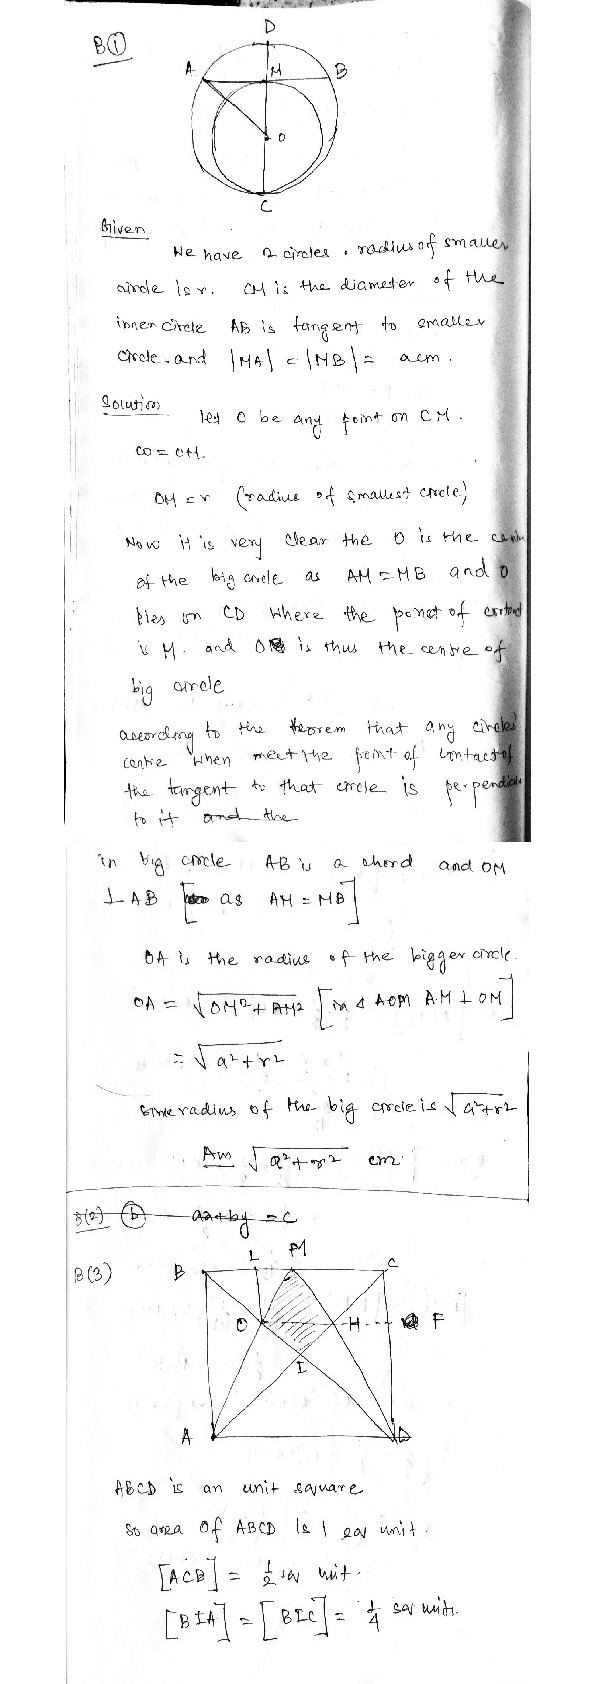 B①
D
A
M
B
O
C
Given
We have 2 circles. radius of smaller
circle is r. CM is the diameter of the
inner circle AB is tangent to smaller
circle. and |MA| = |MB| = acm.
Solution
let O be any point on CM.
CO = OM.
OM = r (radius of smallest circle)
Now it is very clear the O is the
of the big circle as AM = MB and O
lies on CD where the point of contact
is M. and O is thus the centre of
big circle
according to the teorem that any circles
centre when meet the point of contact of
the tangent to that circle is
to it and the
in big circle AB is a chord and OM
⊥ AB [as AM = MB]
OA is the radius of the bigger circle.
OA = √OM²+AM² [in Δ AOM AM ⊥ OM]
= √a²+r²
radius of the big circle is √a²+r²
Ans √a²+r² cm.
B(2) (b) ax+by = c
B(3)
B
L
M
C
O
H
F
I
A
D
ABCD is an unit square
so area of ABCD is 1 sq unit.
[ACB] = ½ sq unit.
[BIA] = [BIC] = ¼ sq units.